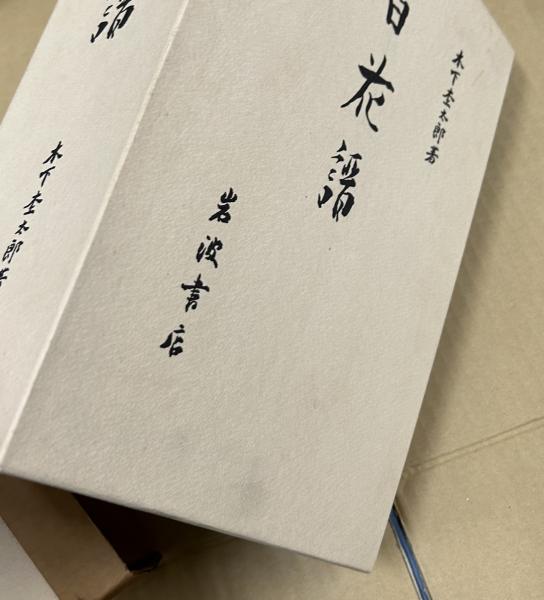 木下杢太郎著
百花譜
岩波書店
譜
木下杢太郎著